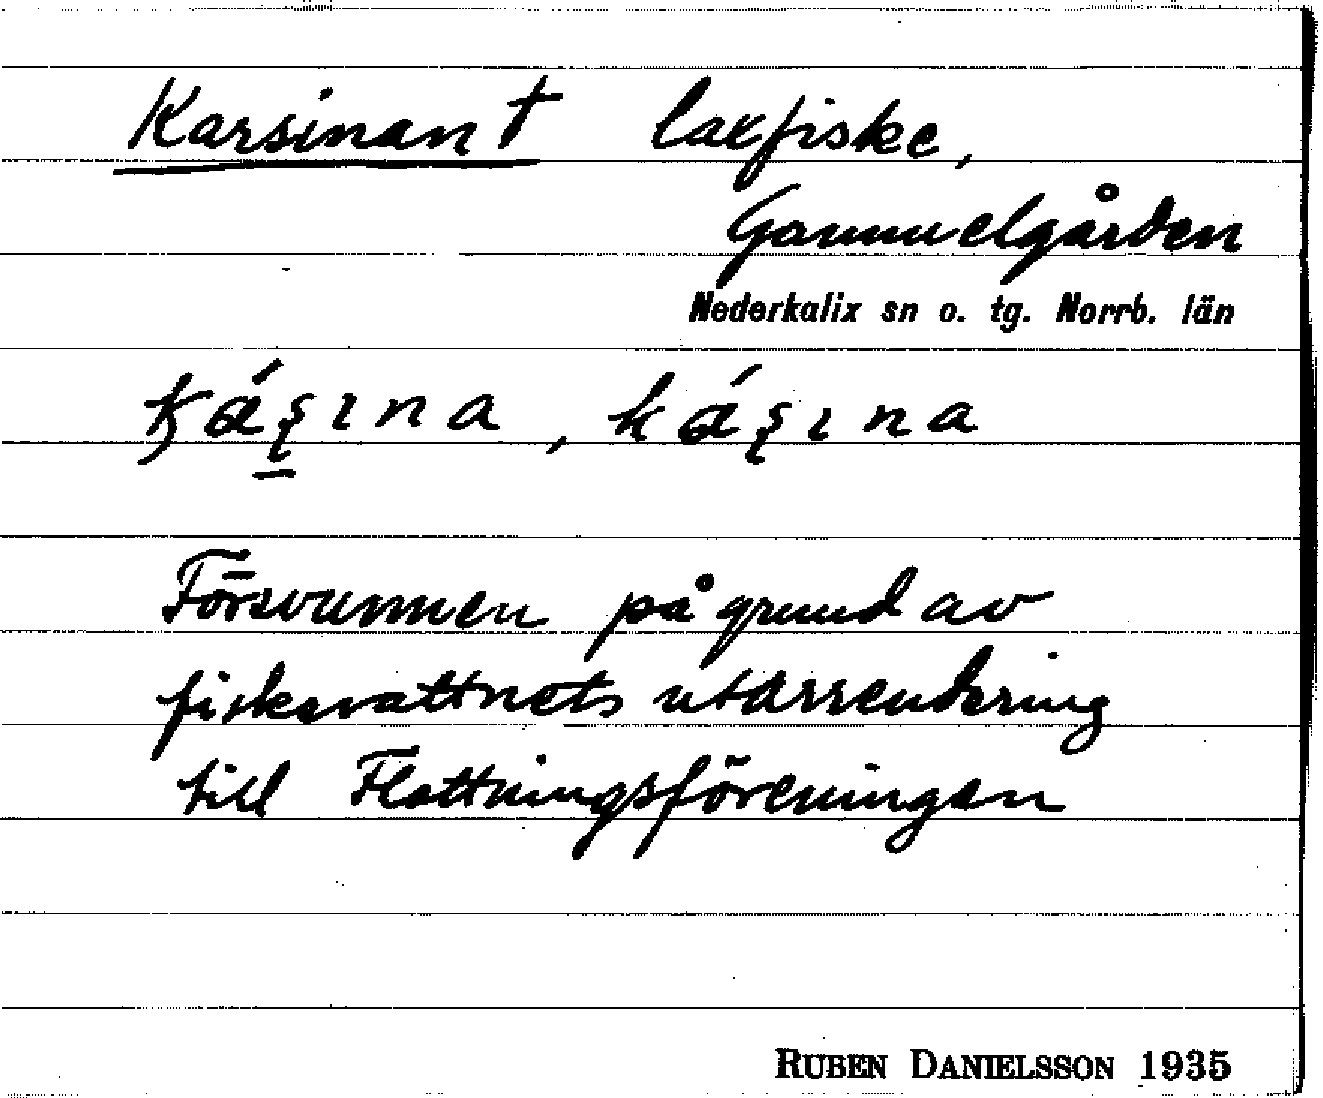 Karsinan † laxfiske,
Gammelgården
Nederkalix sn o. tg. Norrb. län
Försvunnen på grund av
fiskevattnets utarrendering
till Flottningsföreningen
RUBEN DANIELSSON 1935